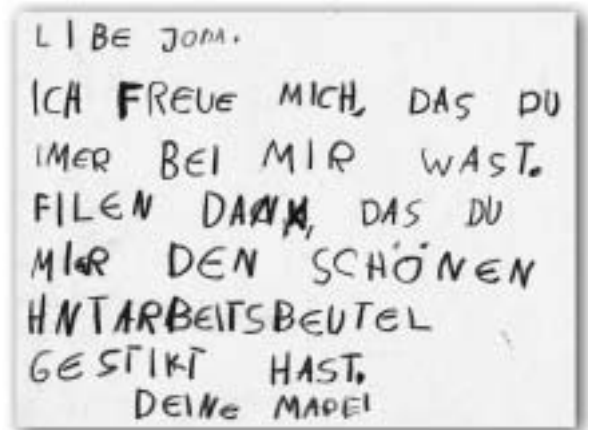 LIBE
ICH FREUE MICH, DAS DU
IMER BEI MIR WAST.
FILEN DANK, DAS DU
MIR DEN SCHÖNEN
HNTARBEITSBEUTEL
GESTIKT HAST.
DEINE